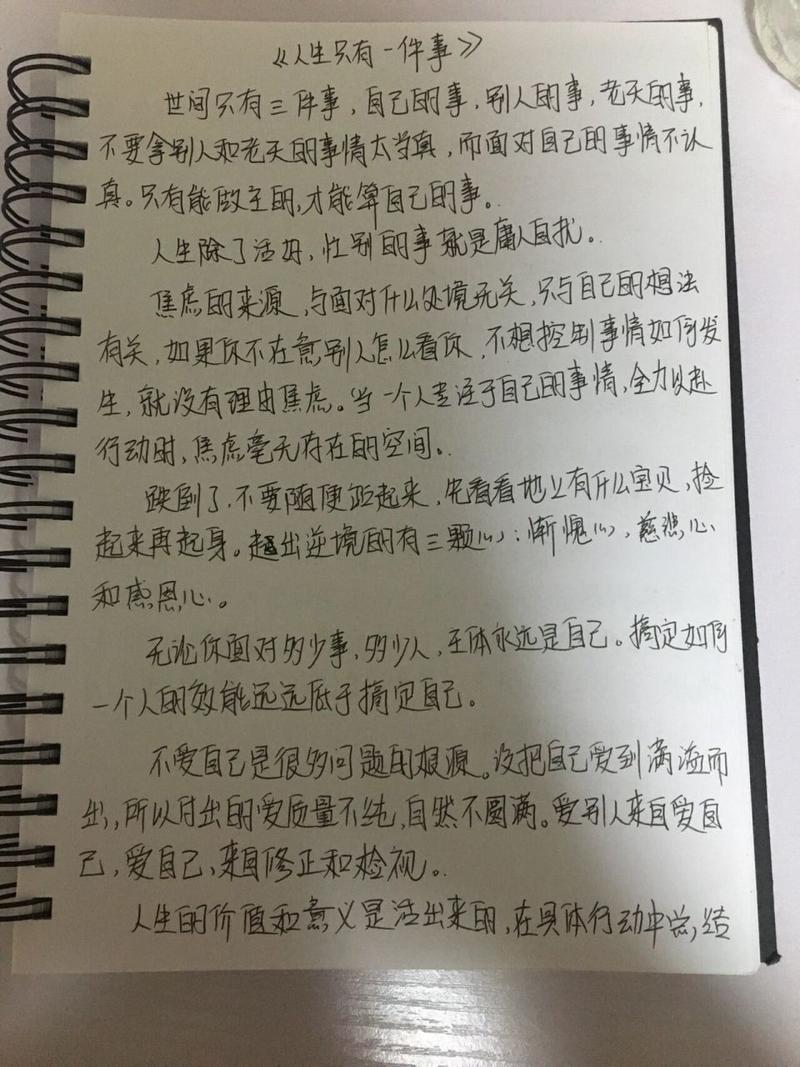 《人生只有一件事》
世间只有三件事，自己的事，别人的事，老天的事，
不要拿别人和老天的事情太当真，而面对自己的事情不认
真。只有能做主的，才能算自己的事。
人生除了活好，忙别的事就是庸人自扰。
焦虑的来源，与面对什么处境无关，只与自己的想法
有关，如果你不在意别人怎么看你，不想控制事情如何发
生，就没有理由焦虑。当一个人专注于自己的事情，全力以赴
行动时，焦虑毫无存在的空间。
跌倒了，不要随便站起来，先看看地上有什么宝贝，捡
起来再起身。超出逆境的有三颗心：惭愧心，慈悲心
和感恩心。
无论你面对多少事，多少人，主体永远是自己。搞定如何
一个人的效能远远低于搞定自己。
不爱自己是很多问题的根源。没把自己爱到满溢而
出，所以付出的爱质量不纯，自然不圆满。爱别人来自爱自
己，爱自己，来自修正和检视。
人生的价值和意义是活出来的，在具体行动中总，结